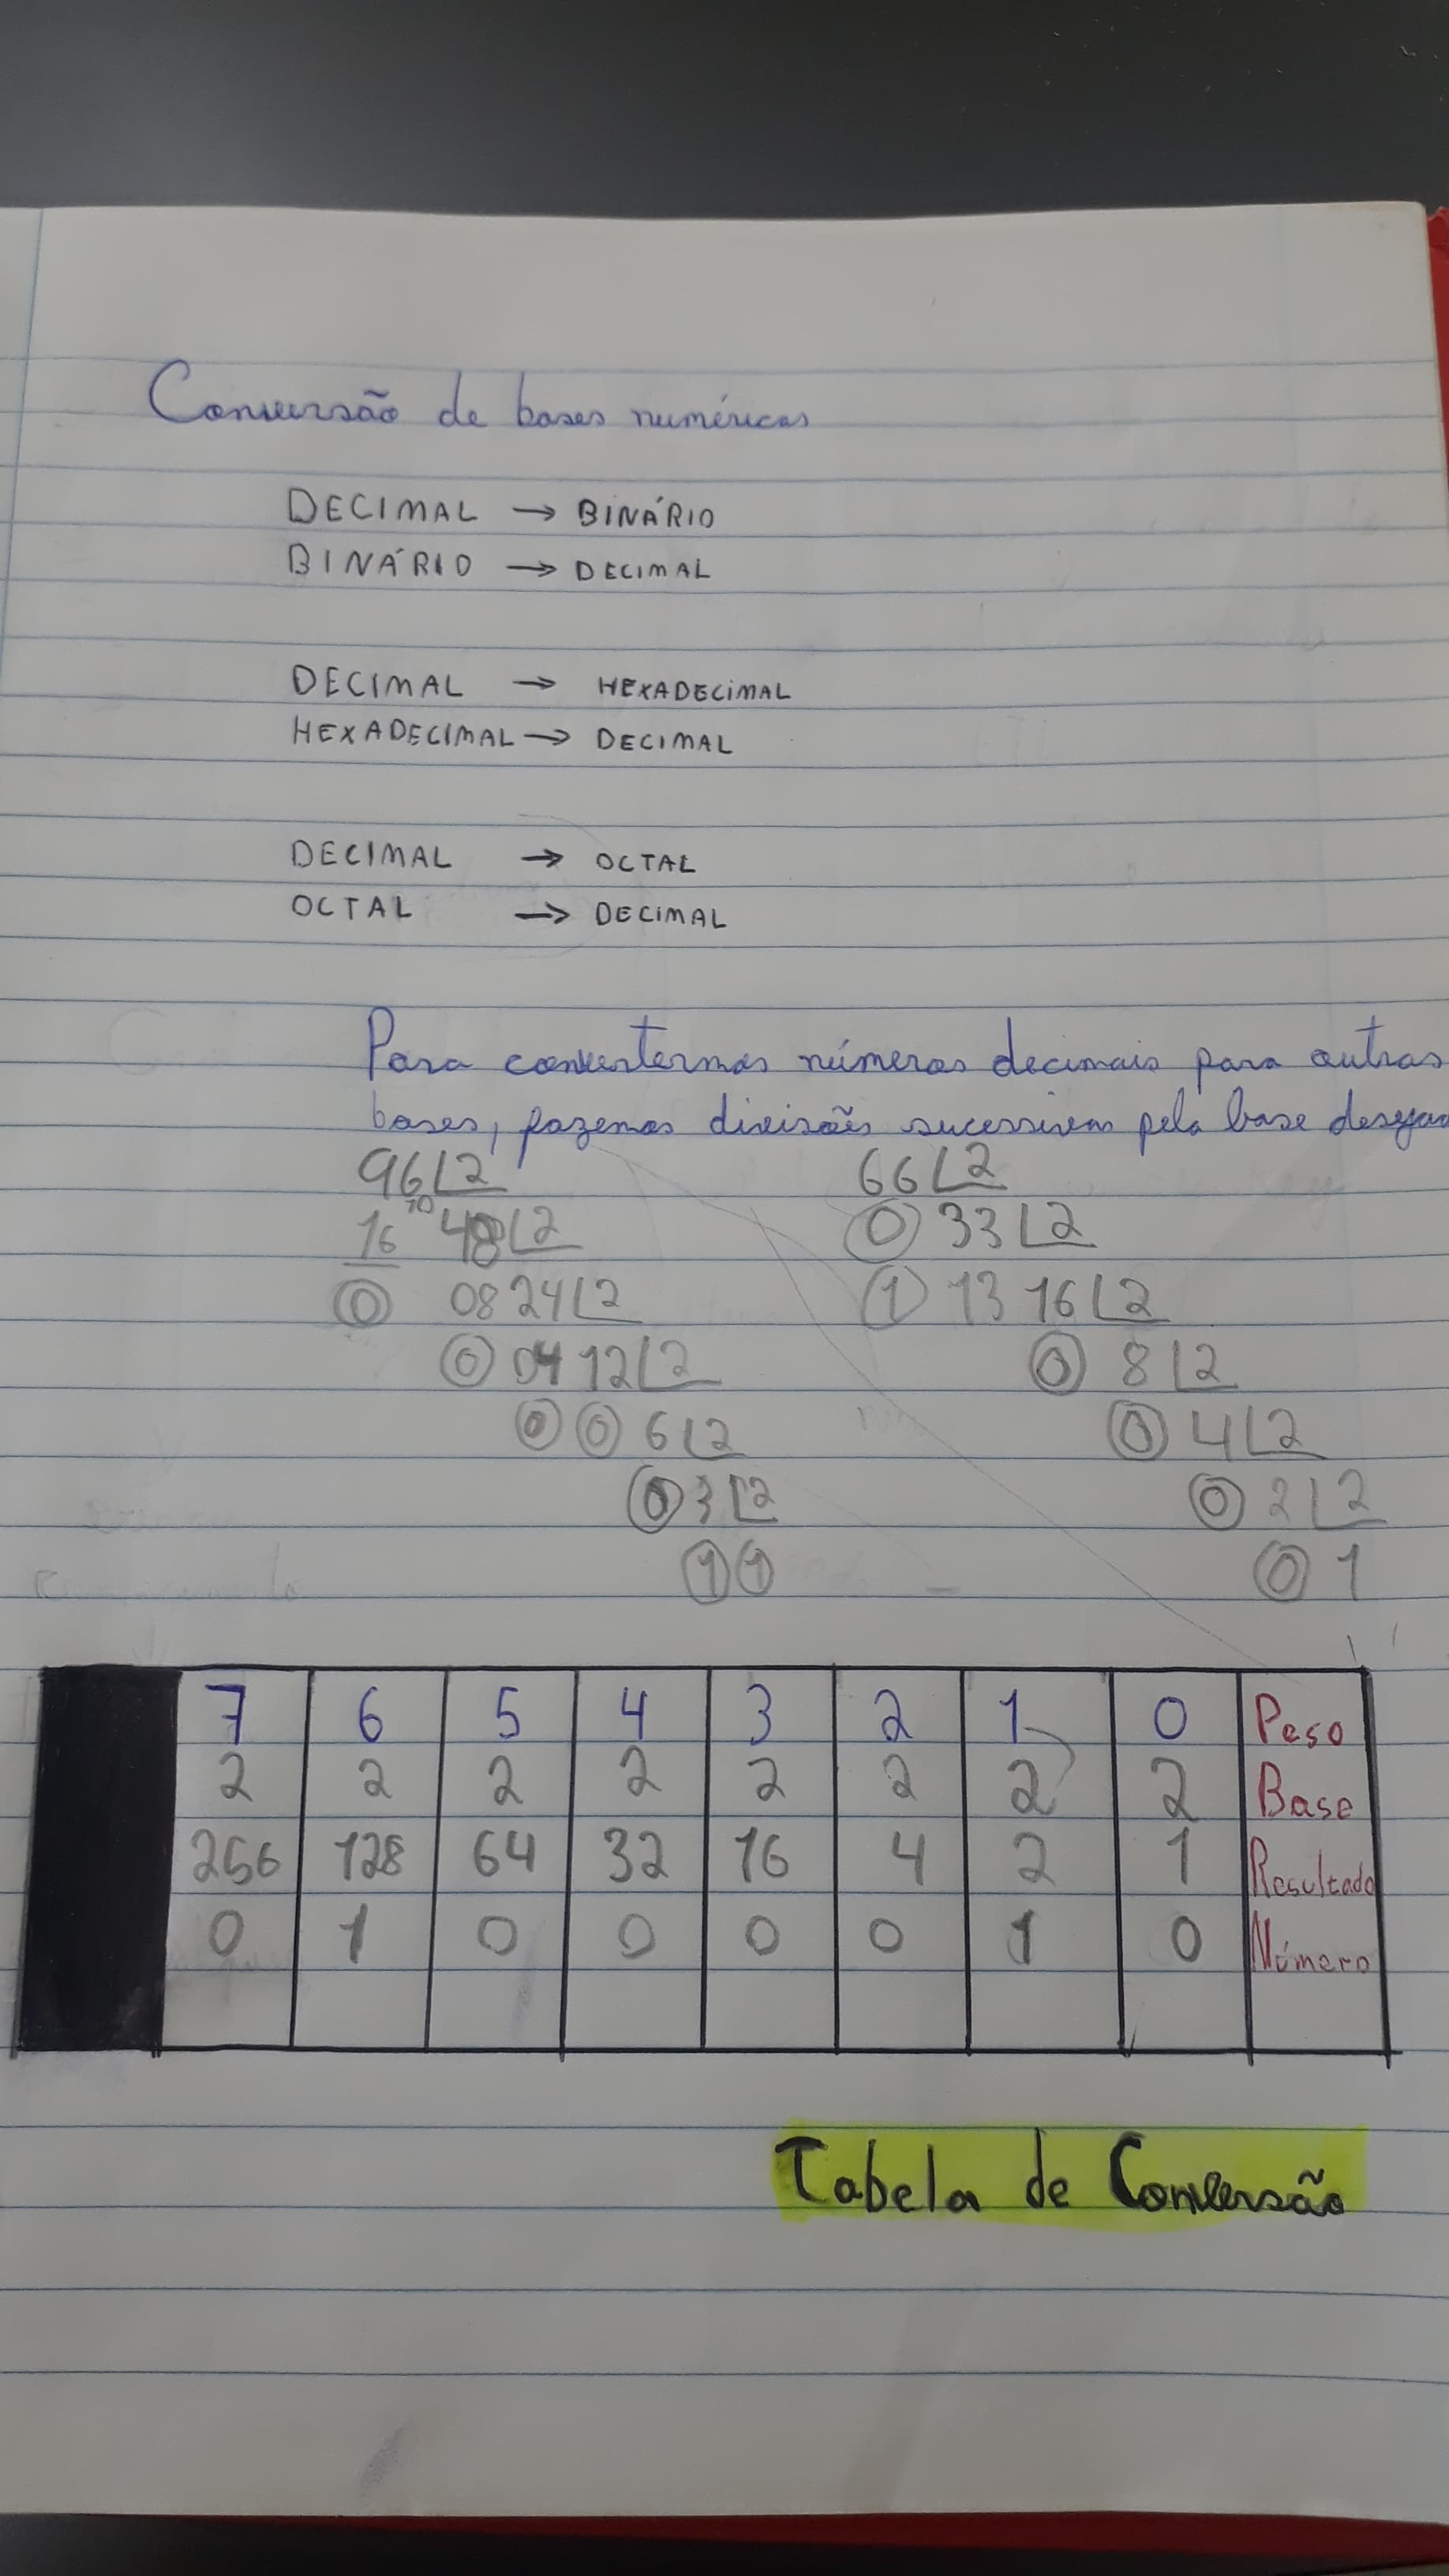 Conversão de bases numéricas
DECIMAL → BINÁRIO
BINÁRIO → DECIMAL
DECIMAL → HEXADECIMAL
HEXADECIMAL → DECIMAL
DECIMAL → OCTAL
OCTAL → DECIMAL
Para convertermos números decimais para outras
bases, fazemos divisões sucessivas pela base
96 2 66 2
16 48 2 0 33 2
0 08 24 2 1 13 16 2
0 04 12 2 0 8 2
0 0 6 2 0 4 2
0 3 2 0 2 2
1 1 0 1
7 6 5 4 3 2 1 0 Peso
2 2 2 2 2 2 2 2 Base
256 128 64 32 16 4 2 1 Resultado
0 1 0 0 0 0 1 0 Número
Tabela de Conversão